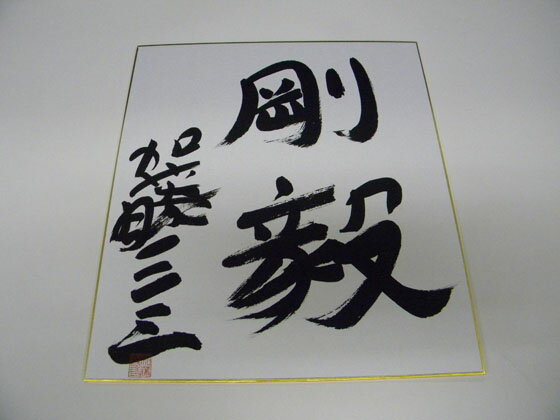 剛毅
加藤一二三